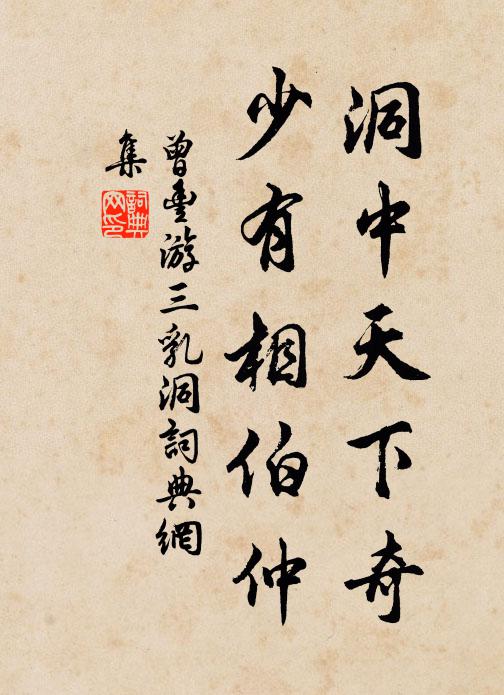 洞中天下奇
少有相伯仲
曾豊游三乳洞詞典網
集
詞典
网印